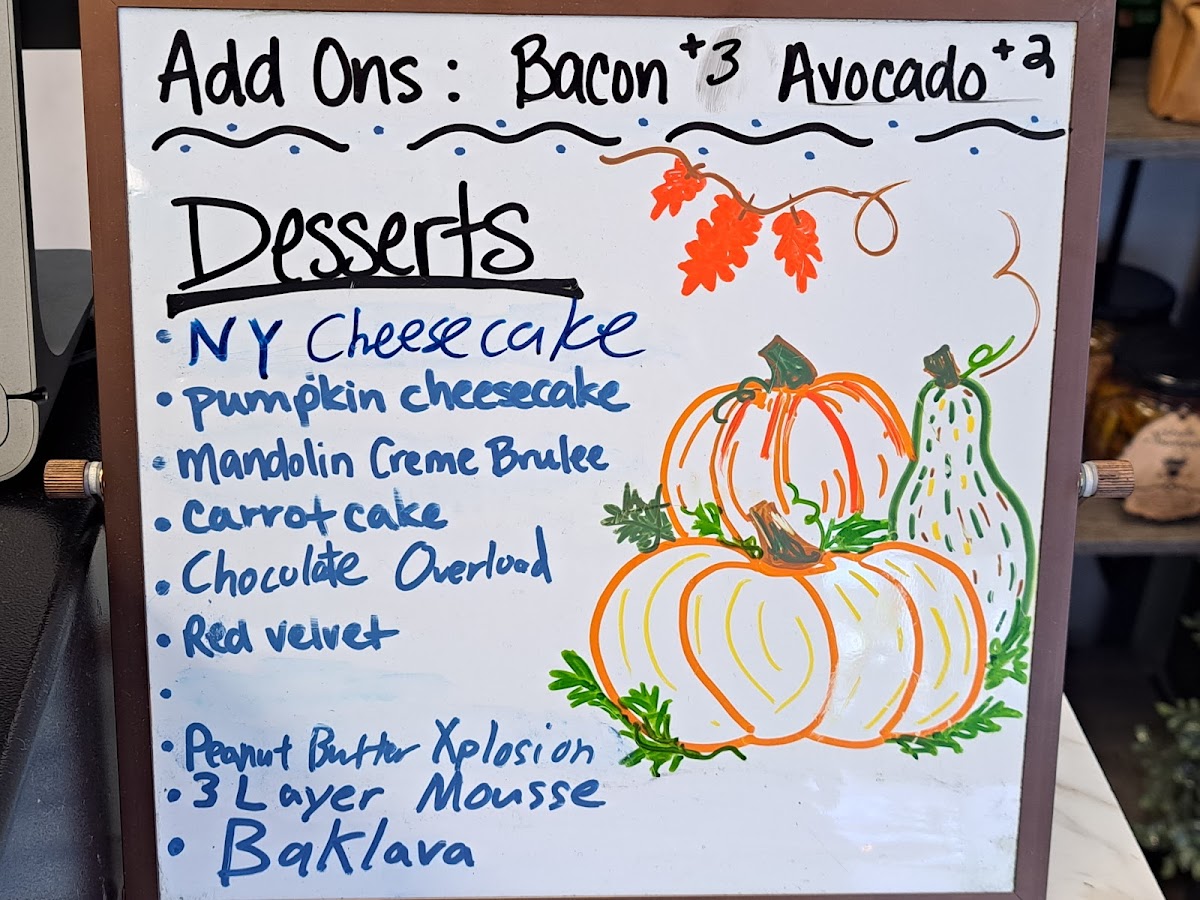 Add Ons: Bacon +3 Avocado +2
Desserts
• NY Cheesecake
• pumpkin cheesecake
• Mandolin Creme Brulee
• Carrot cake
• Chocolate Overload
• Red velvet
•
• Peanut Butter Xplosion
• 3 Layer Mousse
• Baklava